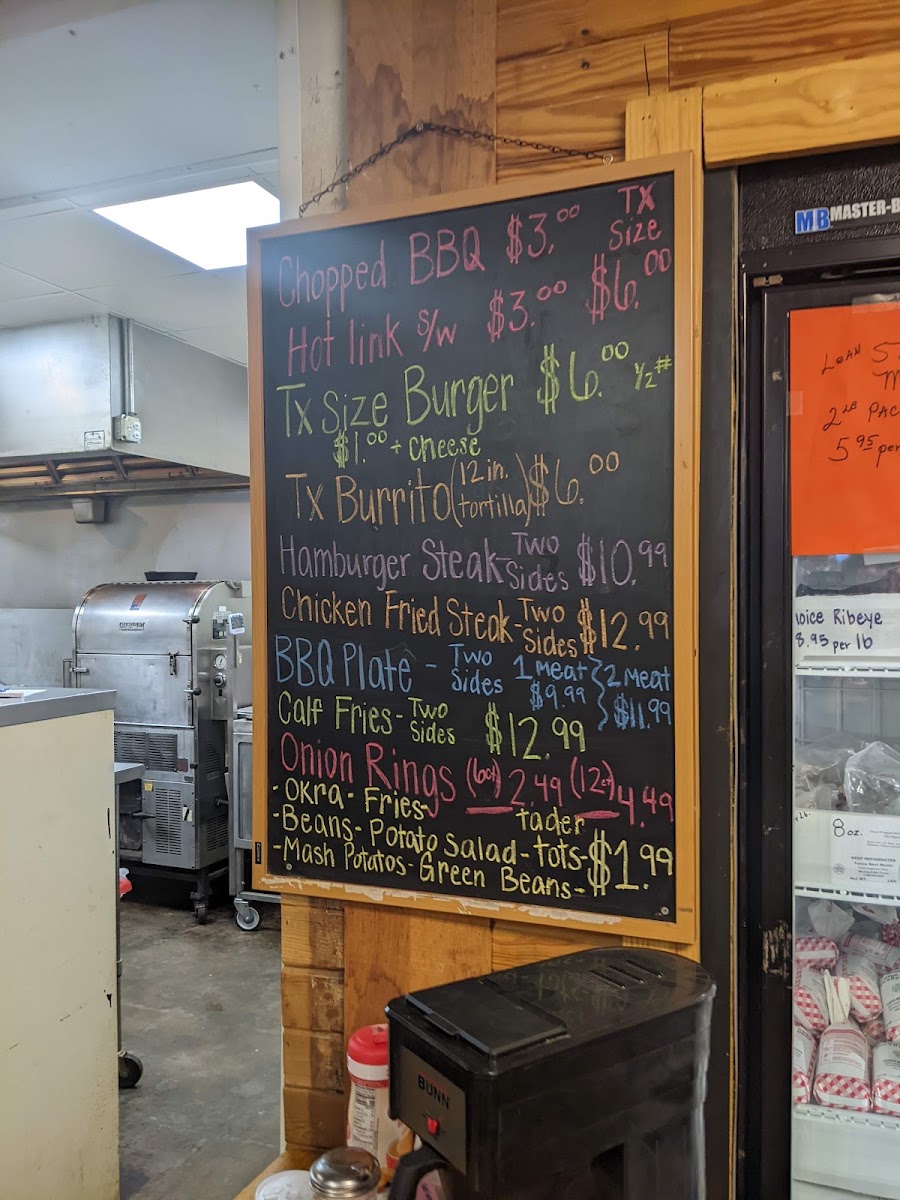 TX
Size
Chopped BBQ $3.00
Hot link s/w $3.00 $6.00
Tx Size Burger $6.00 1/2#
$1.00 + cheese
Tx Burrito (12 in. tortilla) $6.00
Hamburger Steak - Two Sides $10.99
Chicken Fried Steak - Two Sides $12.99
BBQ Plate - Two Sides 1 meat $9.99 } 2 meat $11.99
Calf Fries - Two Sides $12.99
Onion Rings (6ct) 2.49 (12ct) 4.49
- Okra - Fries -
- Beans - Potato Salad - tader tots - $1.99
- Mash Potatos - Green Beans -
MB MASTER-B
LEAN
2 LB PAC
5 95 per
oice Ribeye
8.95 per lb
8 oz.
BUNN